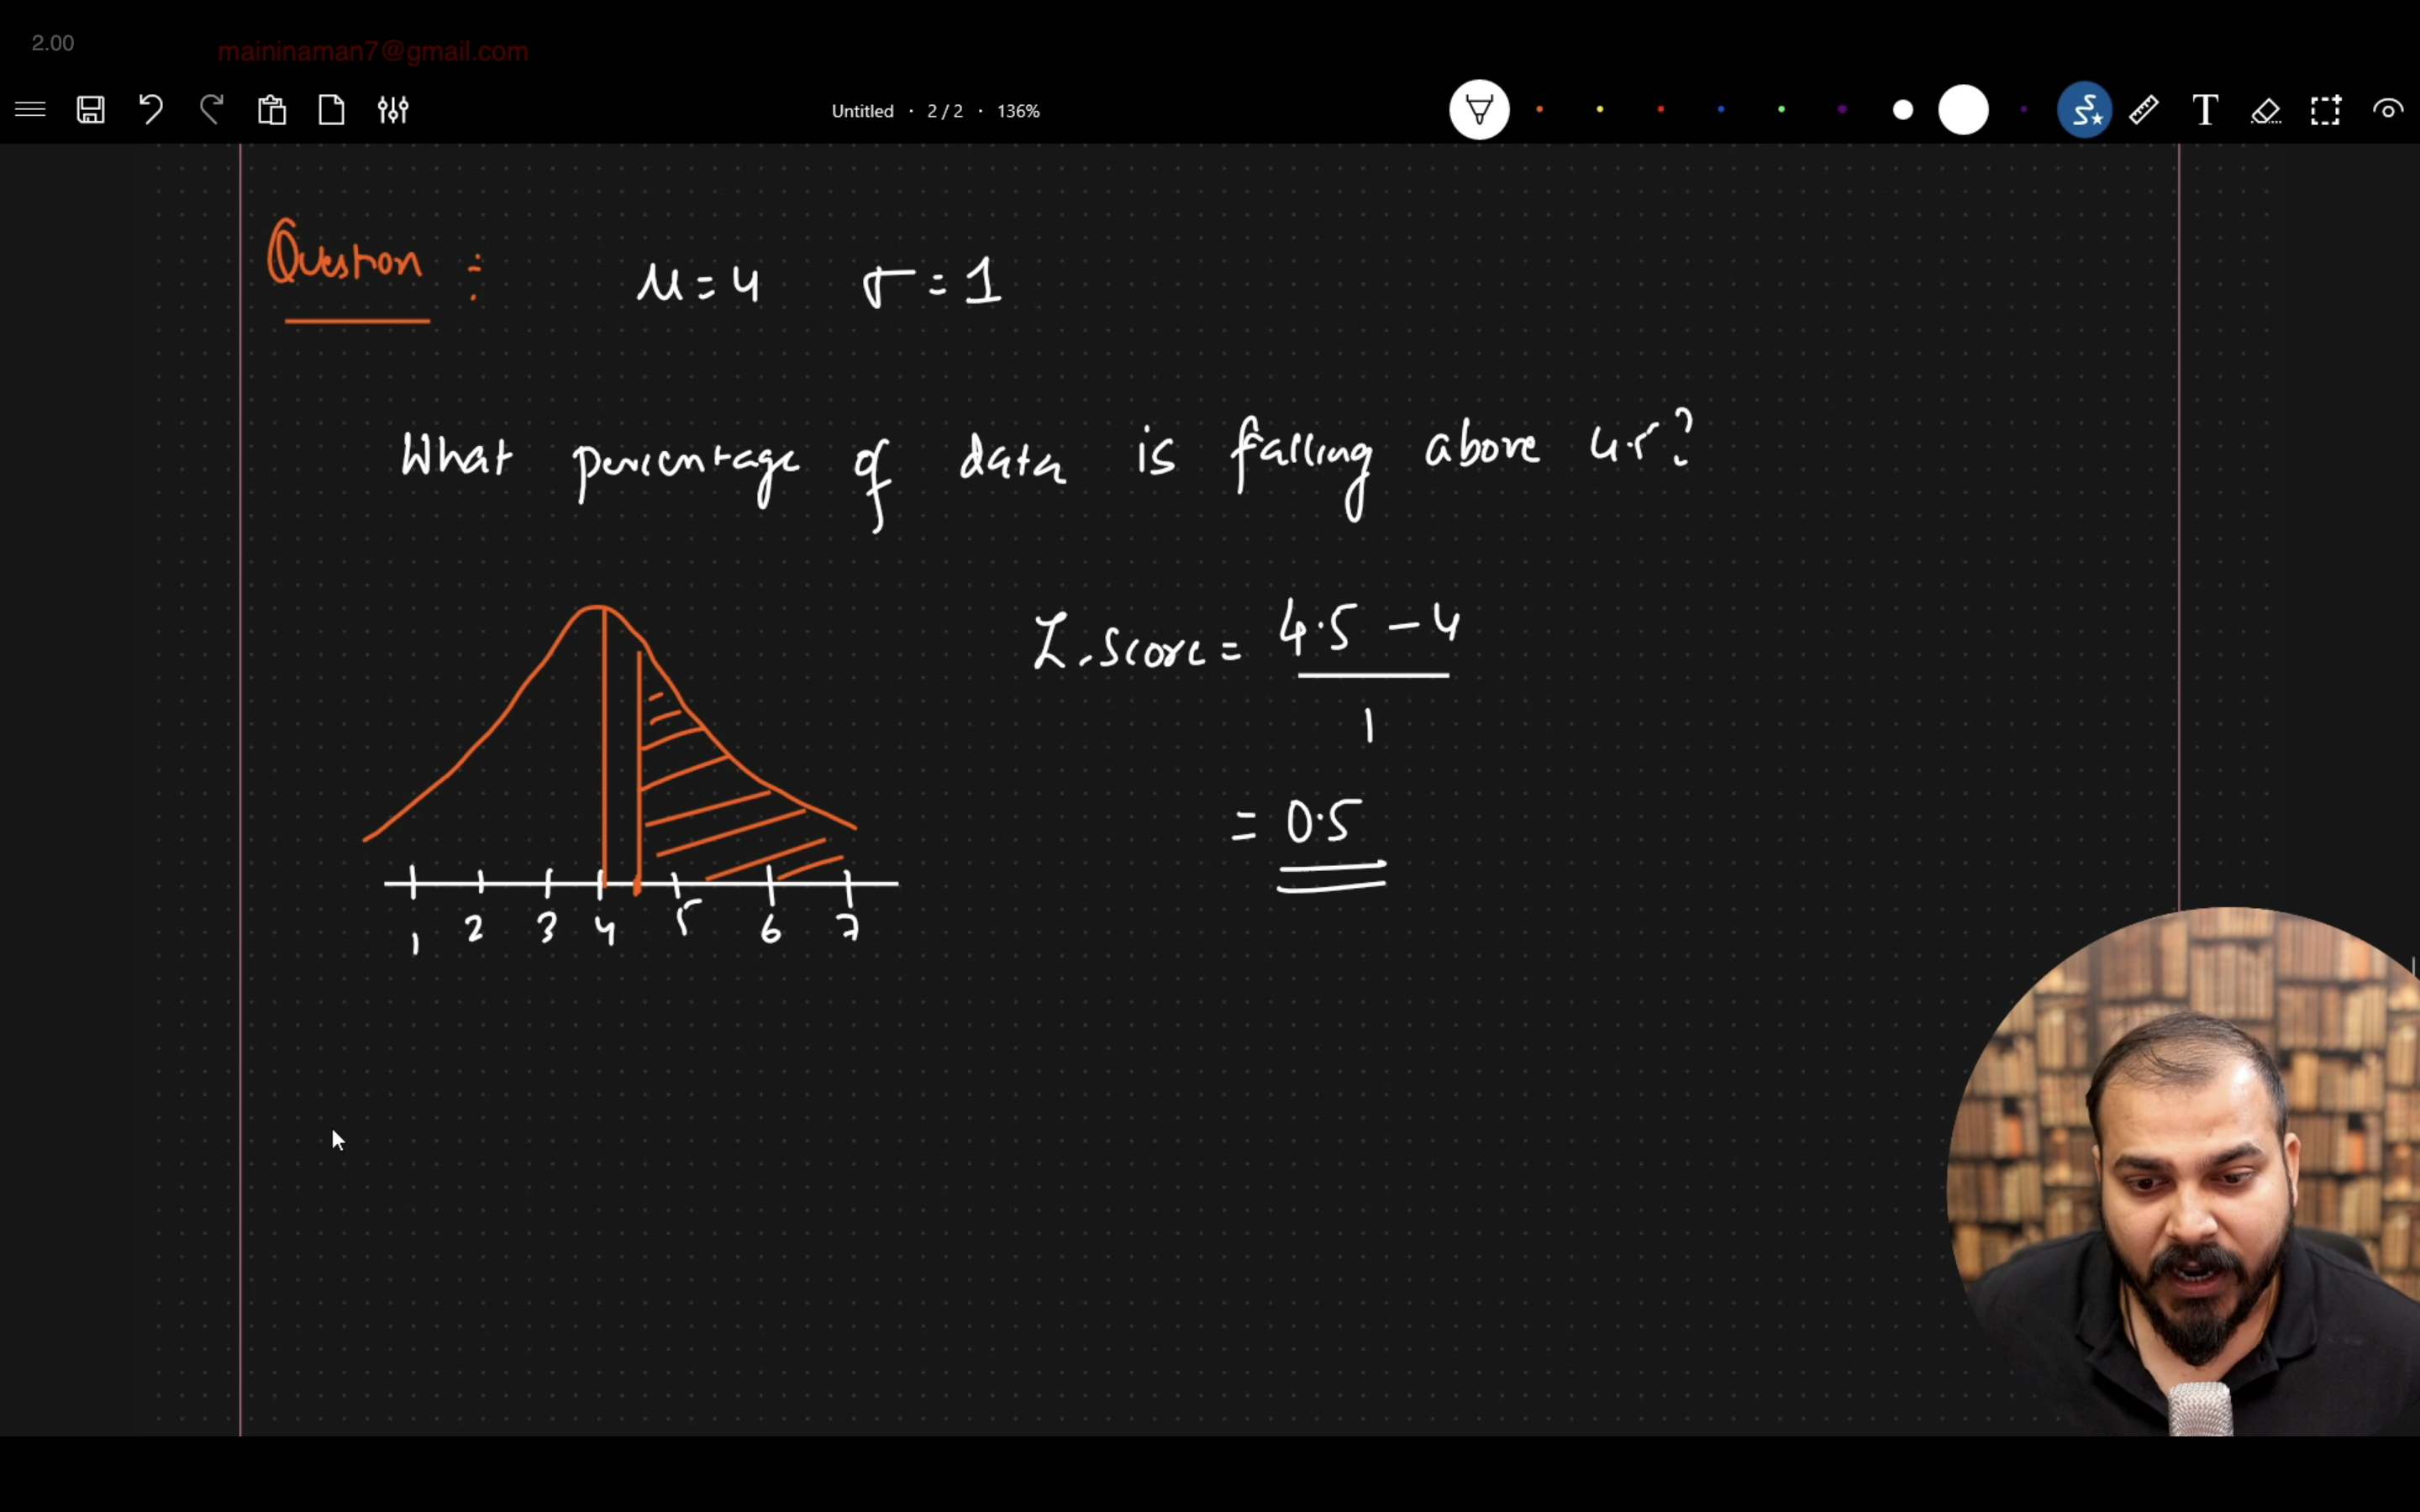 2.00
maininaman7@gmail.com
Untitled · 2 / 2 · 136%
T
Question :
μ = 4 σ = 1
What percentage of data is falling above 4.5?
Z.Score = 4.5 - 4
1
= 0.5
1 2 3 4 5 6 7